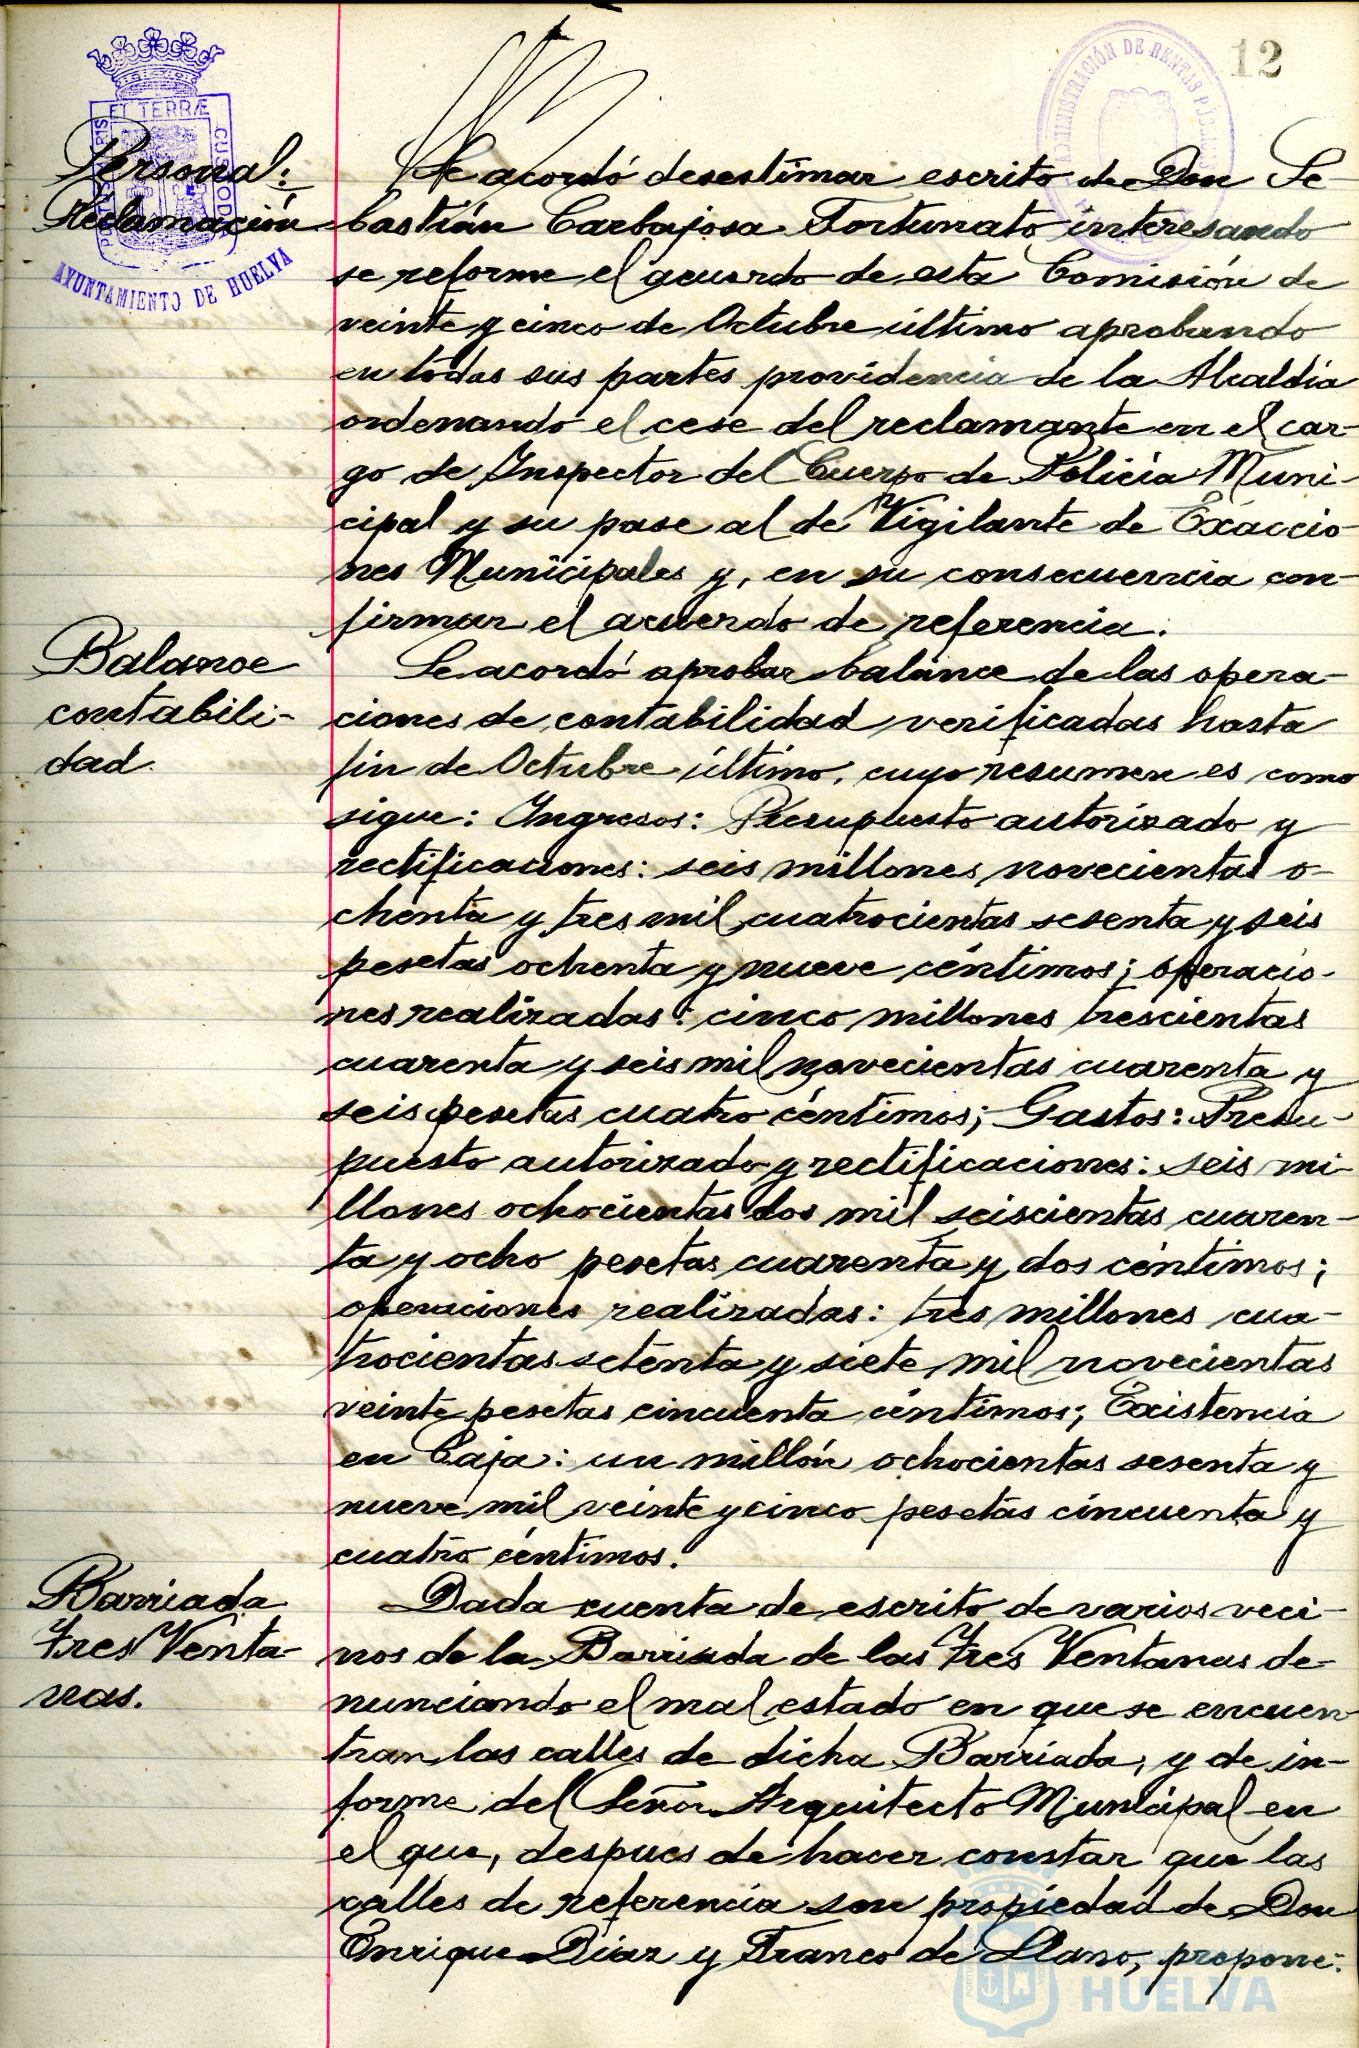 12
ADMINISTRACIÓN DE RENTAS PÚBLICAS
PORTUS MARIS ET TERRÆ CUSTODIA
AYUNTAMIENTO DE HUELVA
Personal:
Reclamación
Se acordó desestimar escrito de Don Se-
bastián Carbajosa Fortunato interesando
se reforme el acuerdo de esta Comisión de
veinte y cinco de Octubre último aprobando
en todas sus partes providencia de la Alcaldía
ordenando el cese del reclamante en el car-
go de Inspector del Cuerpo de Policía Muni-
cipal y su pase al de Vigilante de Exaccio-
nes Municipales y, en su consecuencia con-
firmar el acuerdo de referencia.
Balance
contabili-
dad.
Se acordó aprobar balance de las opera-
ciones de contabilidad verificadas hasta
fin de Octubre último, cuyo resumen es como
sigue: Ingresos: Presupuesto autorizado y
rectificaciones: seis millones novecientas o-
chenta y tres mil cuatrocientas sesenta y seis
pesetas ochenta y nueve céntimos; operacio-
nes realizadas: cinco millones trescientas
cuarenta y seis mil novecientas cuarenta y
seis pesetas cuatro céntimos; Gastos: Presu-
puesto autorizado y rectificaciones: seis mi-
llones ochocientas dos mil seiscientas cuaren-
ta y ocho pesetas cuarenta y dos céntimos;
operaciones realizadas: tres millones cua-
trocientas setenta y siete mil novecientas
veinte pesetas cincuenta céntimos; Existencia
en Caja: un millón ochocientas sesenta y
nueve mil veinte y cinco pesetas cincuenta y
cuatro céntimos.
Barriada
tres Venta-
nas.
Dada cuenta de escrito de varios veci-
nos de la Barriada de las tres Ventanas de-
nunciando el mal estado en que se encuen-
tran las calles de dicha Barriada, y de in-
forme del Señor Arquitecto Municipal en
el que, despues de hacer constar que las
calles de referencia son propiedad de Don
Enrique Díaz y Franco de Llano, propone:
HUELVA